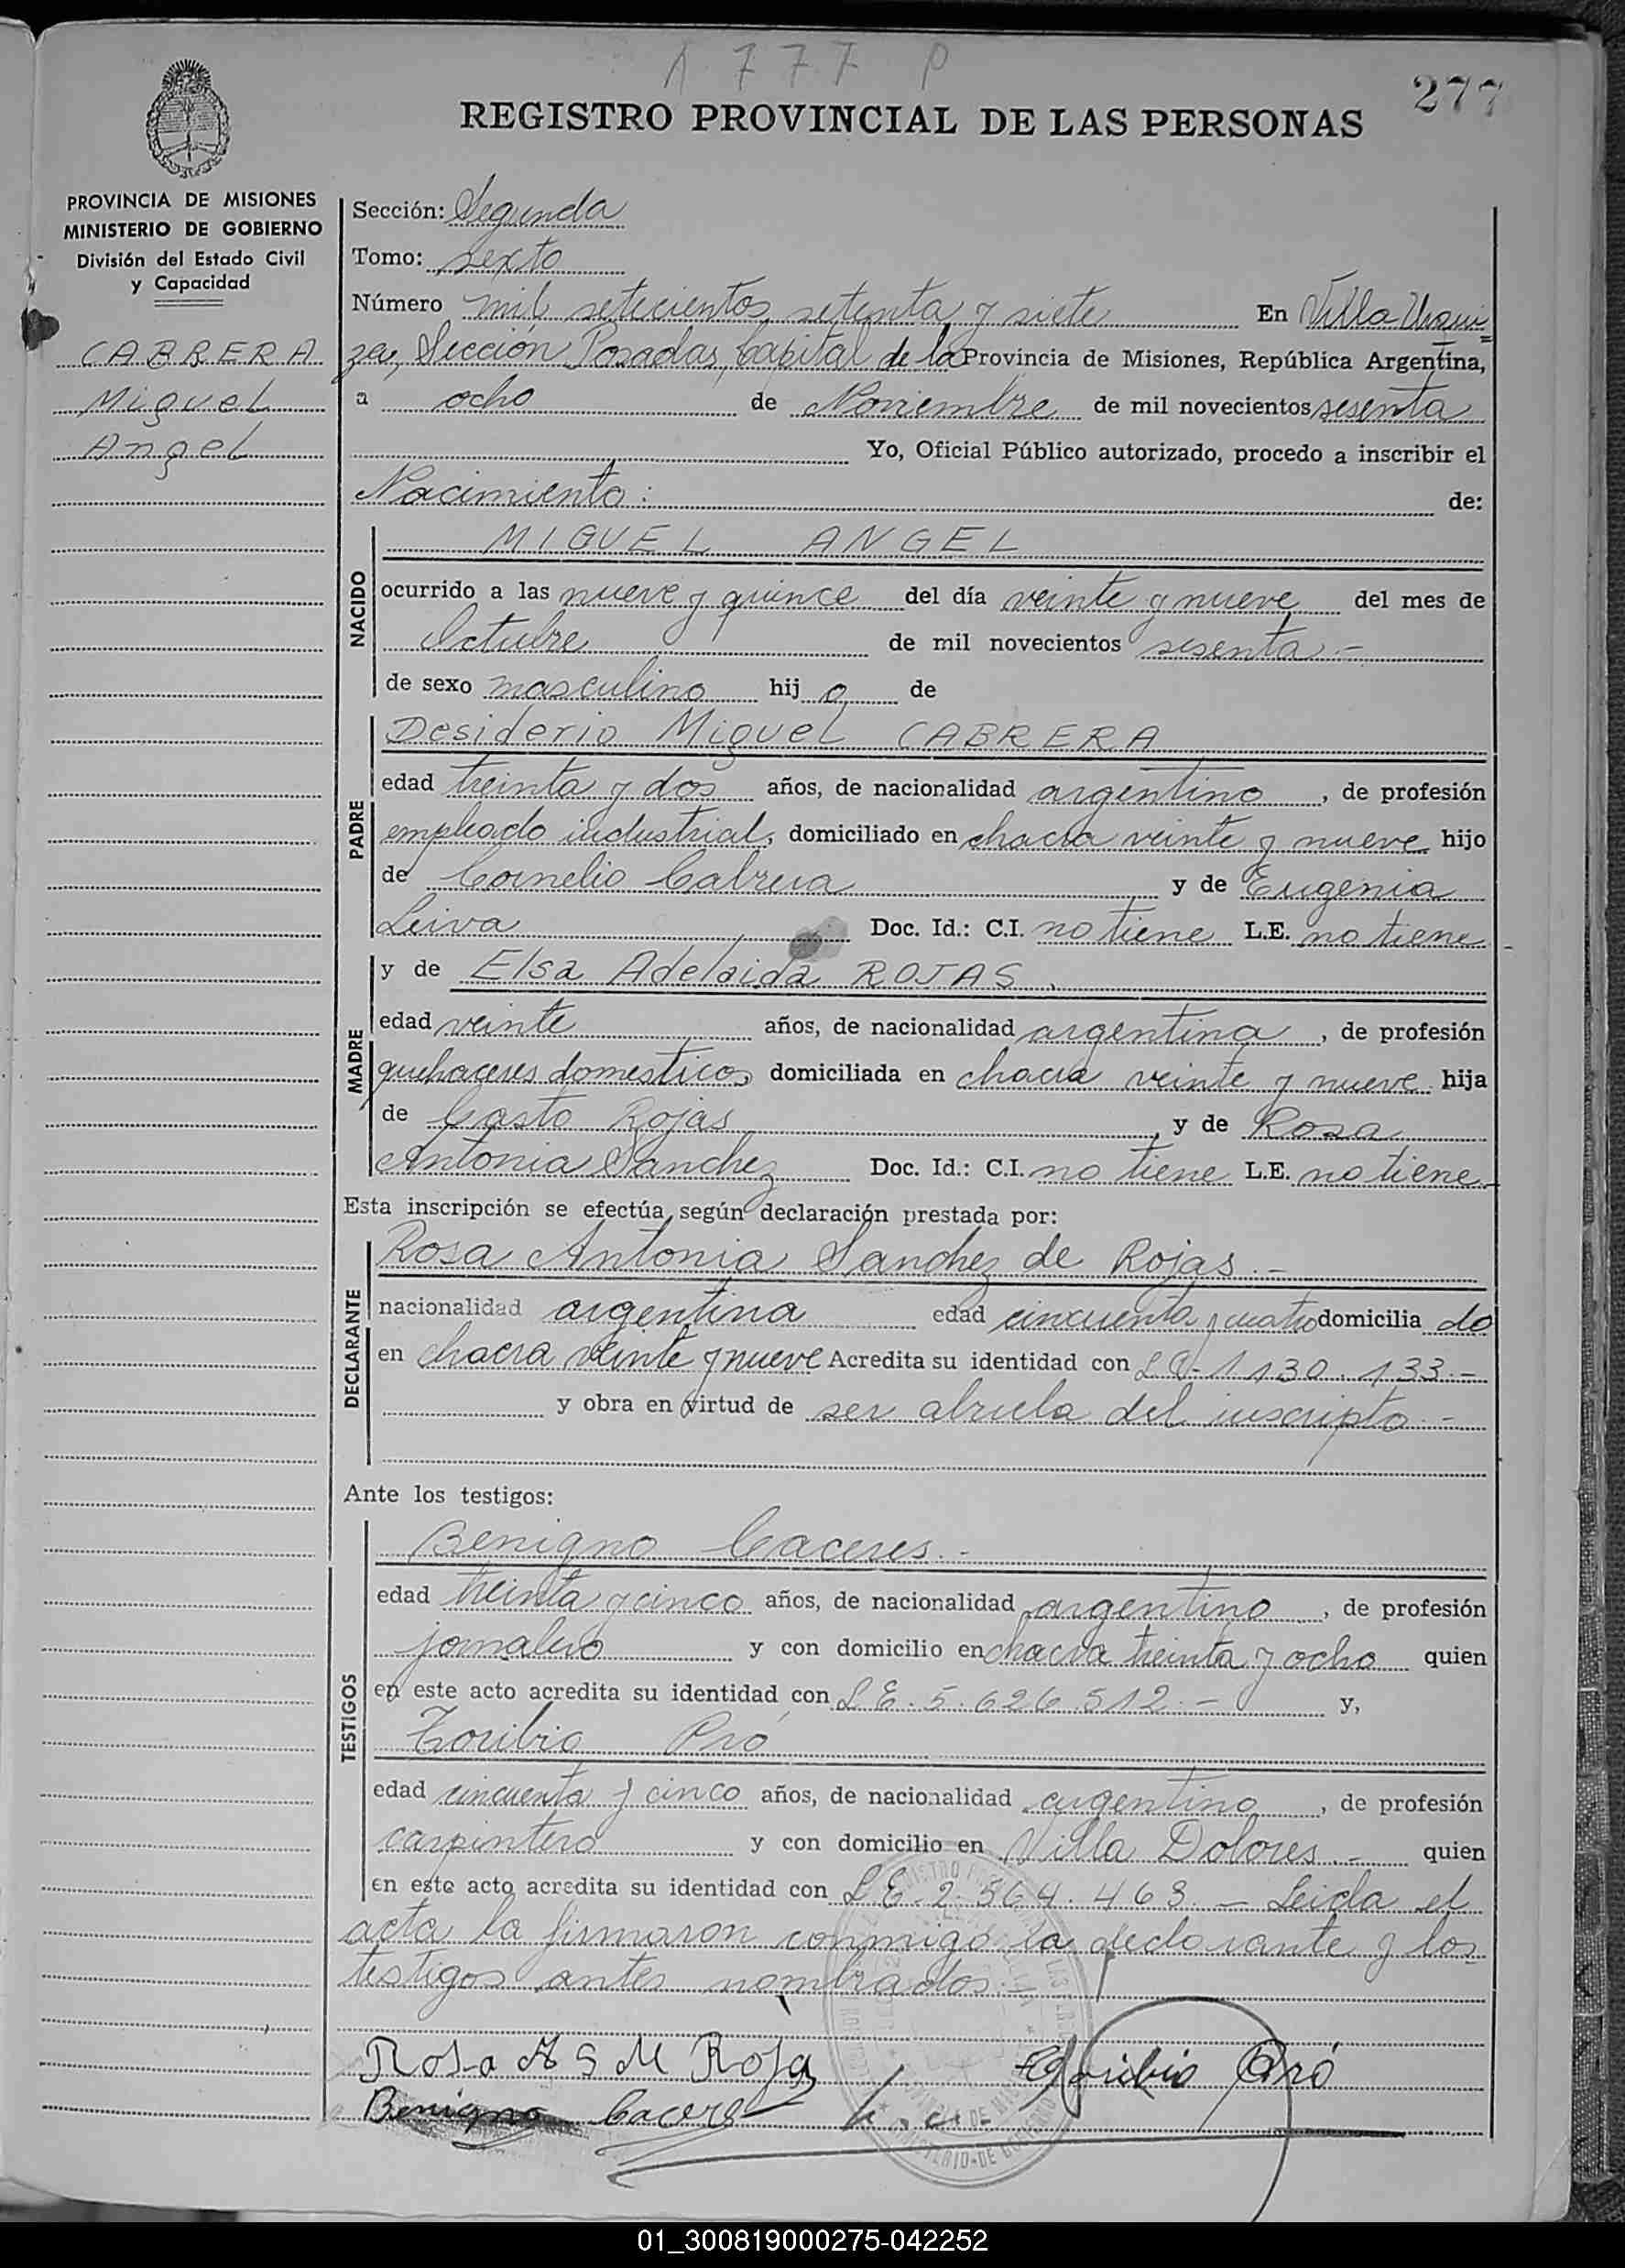 1777 P
277
REGISTRO PROVINCIAL DE LAS PERSONAS
PROVINCIA DE MISIONES
MINISTERIO DE GOBIERNO
División del Estado Civil
y Capacidad
CABRERA
Miguel
Angel
Sección: Segunda
Tomo: sexto
Número mil setecientos setenta y siete En Villa Urqui=
za, Sección Posadas, Capital de la Provincia de Misiones, República Argentina,
a ocho de Noviembre de mil novecientos sesenta
Yo, Oficial Público autorizado, procedo a inscribir el
Nacimiento: de:
NACIDO
MIGUEL ANGEL
ocurrido a las nueve y quince del día veinte y nueve del mes de
Octubre de mil novecientos sesenta.-
de sexo masculino hij o de
PADRE
Desiderio Miguel CABRERA
edad treinta y dos años, de nacionalidad argentino, de profesión
empleado industrial, domiciliado en chacra veinte y nueve hijo
de Cornelio Cabrera y de Eugenia
Leiva Doc. Id.: C.I. no tiene L.E. no tiene
MADRE
y de Elsa Adelaida ROJAS.
edad veinte años, de nacionalidad argentina, de profesión
quehaceres domesticos, domiciliada en chacra veinte y nueve hija
de Casto Rojas, y de Rosa
Antonia Sanchez Doc. Id.: C.I. no tiene L.E. no tiene
Esta inscripción se efectúa según declaración prestada por:
DECLARANTE
Rosa Antonia Sanchez de Rojas.-
nacionalidad argentina edad cincuenta y cuatro domicilia do
en chacra veinte y nueve Acredita su identidad con 1.130.133.-
y obra en virtud de ser abuela del inscripto.-
Ante los testigos:
TESTIGOS
Benigno Caceres.-
edad treinta y cinco años, de nacionalidad argentino, de profesión
jornalero y con domicilio en chacra treinta y ocho quien
en este acto acredita su identidad con L.E. 5.626.512.- y,
Toribio Pró
edad cincuenta y cinco años, de nacionalidad argentino, de profesión
carpintero y con domicilio en Villa Dolores.- quien
en este acto acredita su identidad con L.E. 2.364.463 - Leida el
acta la firmaron conmigo la declarante y los
testigos antes nombrados.-
Rosa A S de Rojas Toribio Pró
Benigno Caceres
01_300819000275-042252